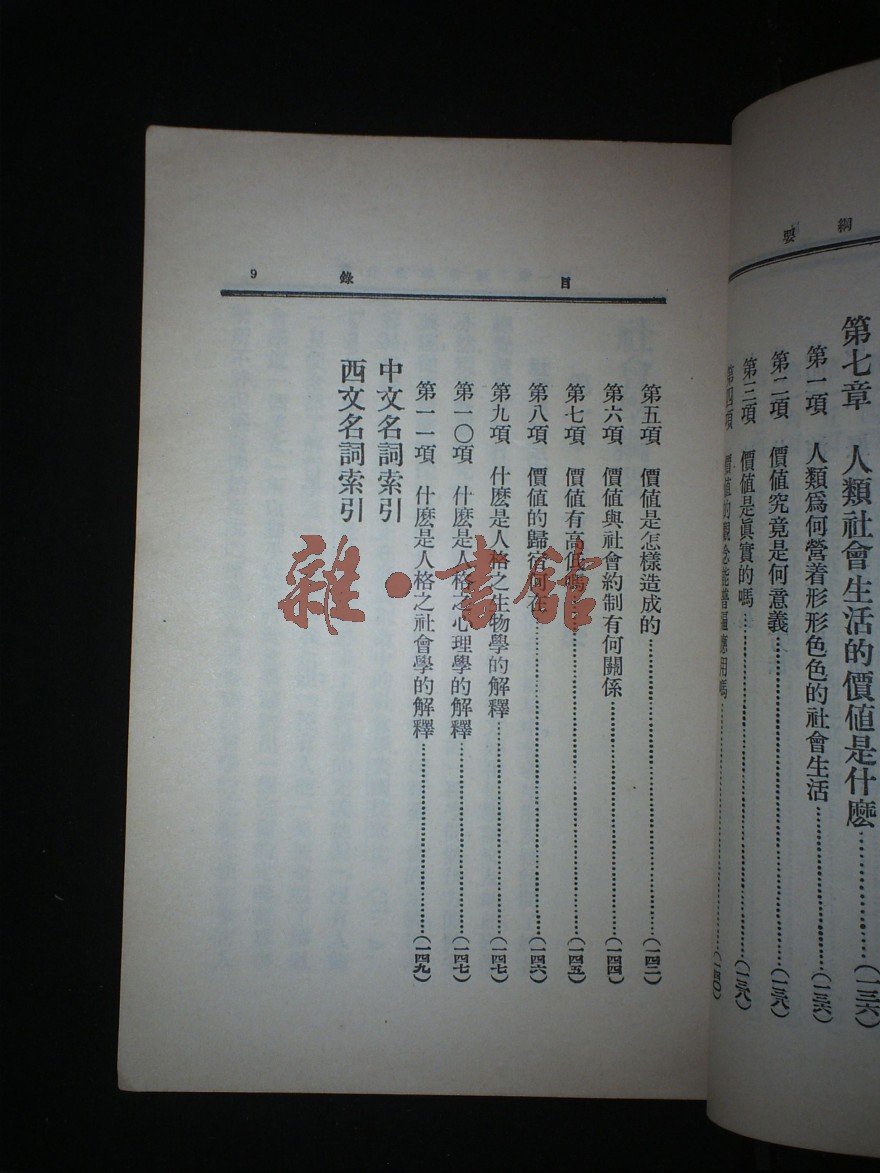 綱要
第七章 人類社會生活的價值是什麽………(一三六)
第一項 人類爲何營着形形色色的社會生活………(一三六)
第二項 價值究竟是何意義………(一三八)
第三項 價值是眞實的嗎………(一三八)
第四項 價值的觀念能普遍應用嗎………(一四〇)
目錄 9
第五項 價值是怎樣造成的………(一四二)
第六項 價值與社會約制有何關係………(一四四)
第七項 價值有高低嗎………(一四五)
第八項 價值的歸宿何在………(一四六)
第九項 什麽是人格之生物學的解釋………(一四七)
第一〇項 什麽是人格之心理學的解釋………(一四七)
第一一項 什麽是人格之社會學的解釋………(一四九)
中文名詞索引
西文名詞索引
雜·書館